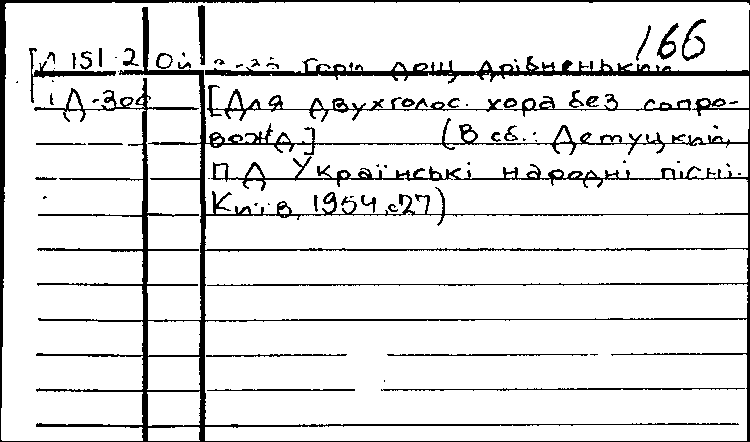 166
И 151 2 Ой з-за гори дощ дрібненький
Д-306 [Для двухголос. хора без сопро-
вожд.] (В сб.: Демуцкий,
П Д Українські народні пісні.
Київ, 1954, с27)